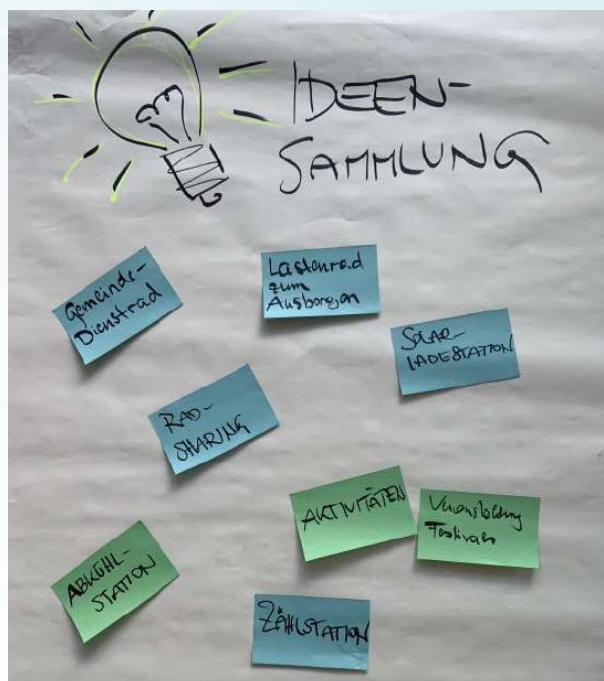 IDEEN-
SAMMLUNG
Gemeinde-
Dienstrad
Lastenrad
zum
Ausborgen
SOLAR-
LADESTATION
RAD-
SHARING
AKTIVITÄTEN
ABKÜHL-
STATION
ZÄHLSTATION